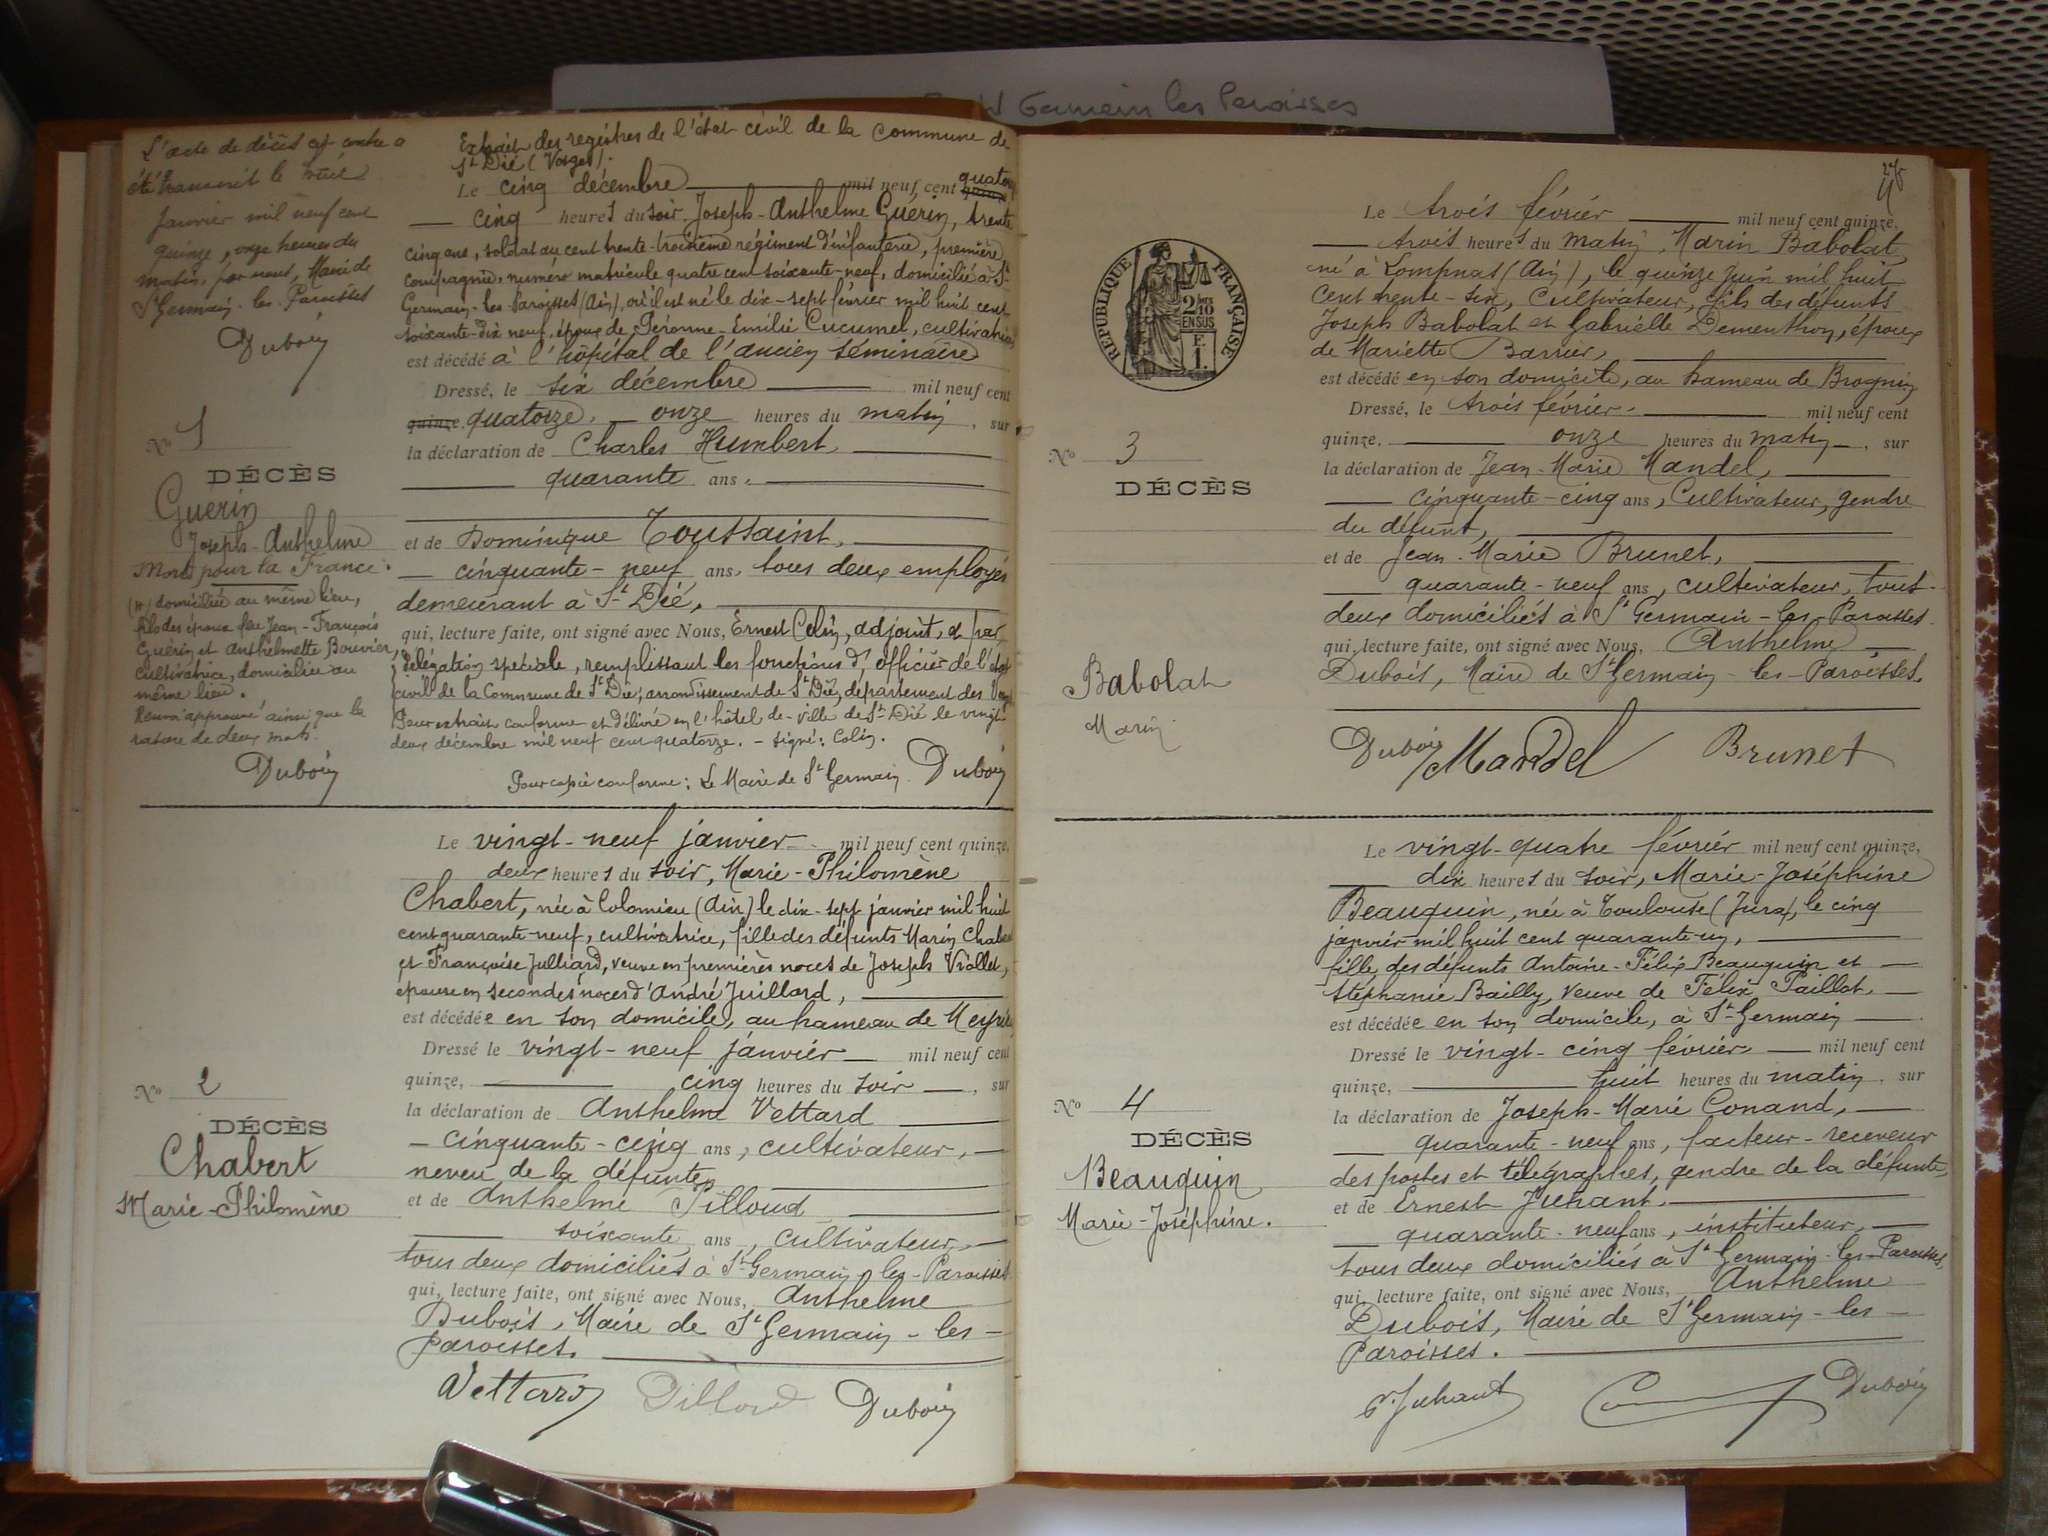 St Germain les Paroisses
L'acte de décès ci-contre a
été transcrit le
janvier mil neuf cent
quinze, onze heures du
matin, par nous, Maire de
St Germain-les-Paroisses
Dubois
N° 1
DÉCÈS
Guérin
Joseph-Anthelme
Mort pour la France.
domiciliée au même lieu,
fils des époux feu Jean-François
Guérin et Anthelmette Bouvier,
cultivatrice, domiciliée au
même lieu.
Renvoi approuvé ainsi que la
rature de deux mots.
Dubois
Extrait des registres de l'état civil de la commune de
St Dié (Vosges).
Le cinq décembre mil neuf cent quatorze
cinq heures du soir, Joseph-Anthelme Guérin, trente
cinq ans, soldat au cent trente-troisième régiment d'infanterie, première
compagnie, numéro matricule quatre cent soixante-neuf, domicilié à St
Germain-les-Paroisses (Ain), où il est né le dix-sept février mil huit cent
soixante-dix neuf, époux de Péronne-Emilie Cucumel, cultivatrice,
est décédé à l'hôpital de l'ancien séminaire
Dressé, le six décembre mil neuf cent
quinze, quatorze, onze heures du matin, sur
la déclaration de Charles Humbert
quarante ans,
et de Dominique Toussaint,
cinquante-neuf ans, tous deux employés
demeurant à St Dié,
qui, lecture faite, ont signé avec Nous, Ernest Colin, adjoint, et par
délégation spéciale, remplissant les fonctions d'officier de l'état
civil de la Commune de St Dié, arrondissement de St Dié, département des
Pour extrait conforme et délivré en l'hôtel-de-ville de St Dié le vingt-
deux décembre mil neuf cent quatorze. - signé: Colin.
Pour copie conforme: Le Maire de St Germain Dubois
N° 2
DÉCÈS
Chabert
Marie-Philomène
Le vingt-neuf janvier mil neuf cent quinze,
deux heures du soir, Marie-Philomène
Chabert, née à Colomieu (Ain) le dix-sept janvier mil huit
cent quarante-neuf, cultivatrice, fille des défunts Marin Chabert
et Françoise Julliard, veuve en premières noces de Joseph Viollet,
épouse en secondes noces d'André Juillard,
est décédée en son domicile, au hameau de Meyrieu
Dressé le vingt-neuf janvier mil neuf cent
quinze, cinq heures du soir, sur
la déclaration de Anthelme Vettard
cinquante-cinq ans, cultivateur,
neveu de la défunte,
et de Anthelme Pilloud
soixante ans, cultivateur,
tous deux domiciliés à St Germain-les-Paroisses
qui, lecture faite, ont signé avec Nous, Anthelme
Dubois, Maire de St Germain-les-
Paroisses.
Vettard Pilloud Dubois
RÉPUBLIQUE FRANÇAISE
2/10
EN SUS
F.
1.
N° 3
DÉCÈS
Babolat
Marin
Le trois février mil neuf cent quinze,
trois heures du matin, Marin Babolat,
né à Lompnas (Ain), le quinze juin mil huit
cent trente-six, Cultivateur, fils des défunts
Joseph Babolat et Gabrielle Dementhon, époux
de Mariette Barrier,
est décédé en son domicile, au hameau de Brognin
Dressé, le trois février mil neuf cent
quinze, onze heures du matin, sur
la déclaration de Jean-Marie Mandel,
cinquante-cinq ans, Cultivateur, gendre
du défunt,
et de Jean-Marie Brunet,
quarante-neuf ans, cultivateur, tous
deux domiciliés à St Germain-les-Paroisses
qui, lecture faite, ont signé avec Nous, Anthelme
Dubois, Maire de St Germain-les-Paroisses.
Dubois Mandel Brunet
N° 4
DÉCÈS
Beauquin
Marie-Joséphine.
Le vingt-quatre février mil neuf cent quinze,
dix heures du soir, Marie-Joséphine
Beauquin, née à Toulouse (Jura), le cinq
janvier mil huit cent quarante-un,
fille des défunts Antoine-Félix Beauquin et
Stéphanie Bailly, veuve de Félix Paillot,
est décédée en son domicile, à St Germain
Dressé le vingt-cinq février mil neuf cent
quinze, huit heures du matin, sur
la déclaration de Joseph-Marie Conand,
quarante-neuf ans, facteur-receveur
des postes et télégraphes, gendre de la défunte,
et de Ernest Juhant,
quarante-neuf ans, instituteur,
tous deux domiciliés à St Germain-les-Paroisses,
qui, lecture faite, ont signé avec Nous, Anthelme
Dubois, Maire de St Germain-les-
Paroisses.
E. Juhant Dubois